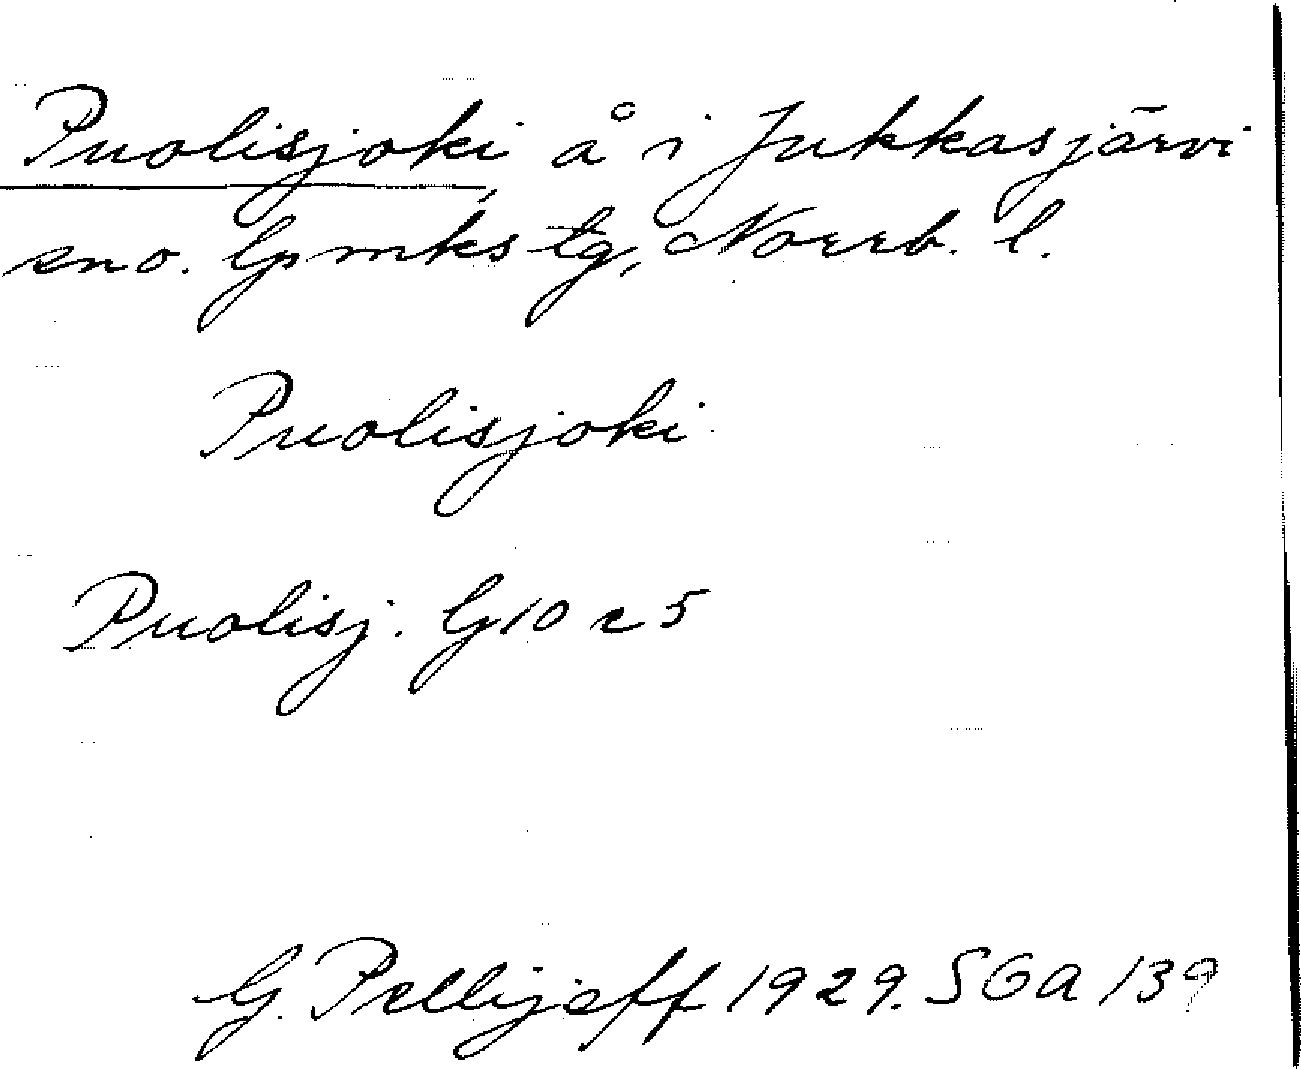 Puolisjoki å i Jukkasjärvi
sno. Gmks tg, Norrb. l.
Puolisjoki
Puolisj. G10 c 5
G. Pellijeff 1929. SGA 139